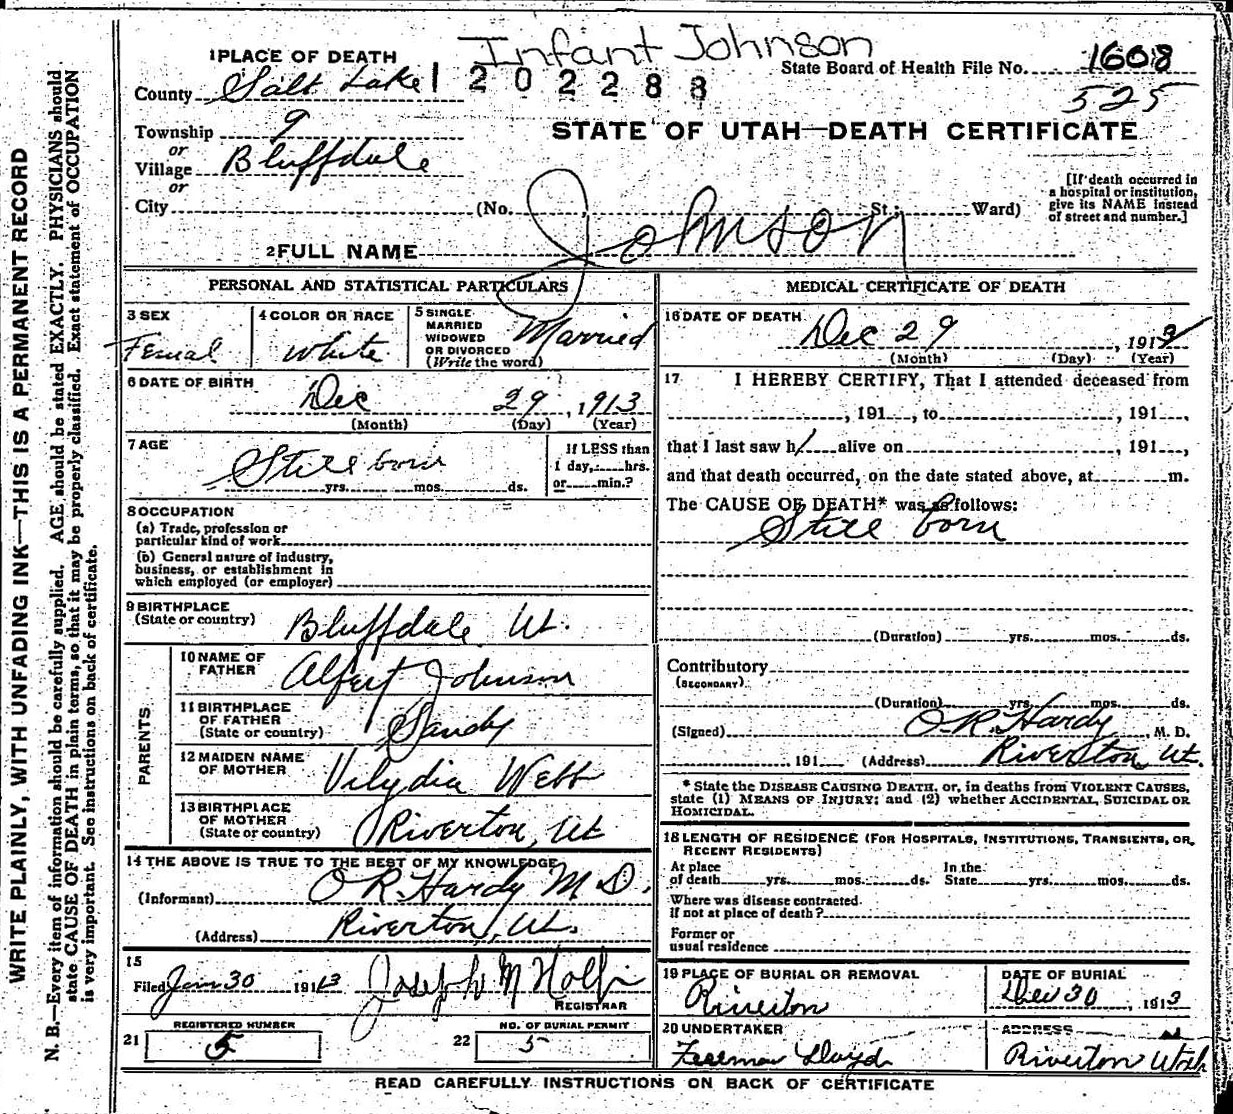 Infant Johnson
1 PLACE OF DEATH
State Board of Health File No. 1608
County Salt Lake 1 202288
525
Township 9
STATE OF UTAH—DEATH CERTIFICATE
or
Village Bluffdale
or
City (No. St.; Ward)
[If death occurred in
a hospital or institution,
give its NAME instead
of street and number.]
2 FULL NAME Johnson
WRITE PLAINLY, WITH UNFADING INK—THIS IS A PERMANENT RECORD
N. B.—Every item of information should be carefully supplied. AGE should be stated EXACTLY. PHYSICIANS should
state CAUSE OF DEATH in plain terms, so that it may be properly classified. Exact statement of OCCUPATION
is very important. See instructions on back of certificate.
PERSONAL AND STATISTICAL PARTICULARS
3 SEX
Femal
4 COLOR OR RACE
White
5 SINGLE
MARRIED
WIDOWED
OR DIVORCED
(Write the word)
Married
6 DATE OF BIRTH
Dec 29, 1913
(Month) (Day) (Year)
7 AGE
Still born
yrs. mos. ds.
If LESS than
1 day, hrs.
or min.?
8 OCCUPATION
(a) Trade, profession or
particular kind of work
(b) General nature of industry,
business, or establishment in
which employed (or employer)
9 BIRTHPLACE
(State or country) Bluffdale Ut.
PARENTS
10 NAME OF
FATHER Johnson
11 BIRTHPLACE
OF FATHER
(State or country) Sandy
12 MAIDEN NAME
OF MOTHER Vilydia Webb
13 BIRTHPLACE
OF MOTHER
(State or country) Riverton, Ut
14 THE ABOVE IS TRUE TO THE BEST OF MY KNOWLEDGE
(Informant) O R. Hardy M D.
(Address) Riverton, Ut.
15
Filed Jan 30 1913 Joseph M
REGISTRAR
REGISTERED NUMBER
21 5
NO. OF BURIAL PERMIT
22 5
MEDICAL CERTIFICATE OF DEATH
16 DATE OF DEATH
Dec 29, 191
(Month) (Day) (Year)
17 I HEREBY CERTIFY, That I attended deceased from
, 191 , to , 191 ,
that I last saw h alive on , 191 ,
and that death occurred, on the date stated above, at m.
The CAUSE OF DEATH* was as follows:
Still born
(Duration) yrs. mos. ds.
Contributory
(SECONDARY)
(Duration) yrs. mos. ds.
(Signed) O. R. Hardy, M. D.
191 (Address) Riverton Ut.
* State the DISEASE CAUSING DEATH, or, in deaths from VIOLENT CAUSES,
state (1) MEANS OF INJURY; and (2) whether ACCIDENTAL, SUICIDAL OR
HOMICIDAL.
18 LENGTH OF RESIDENCE (FOR HOSPITALS, INSTITUTIONS, TRANSIENTS, OR
RECENT RESIDENTS)
At place
of death yrs. mos. ds.
In the
State yrs. mos. ds.
Where was disease contracted
if not at place of death?
Former or
usual residence
19 PLACE OF BURIAL OR REMOVAL
Riverton
DATE OF BURIAL
Dec 30, 1913
20 UNDERTAKER
Lloyd
ADDRESS
Riverton Utah
READ CAREFULLY INSTRUCTIONS ON BACK OF CERTIFICATE